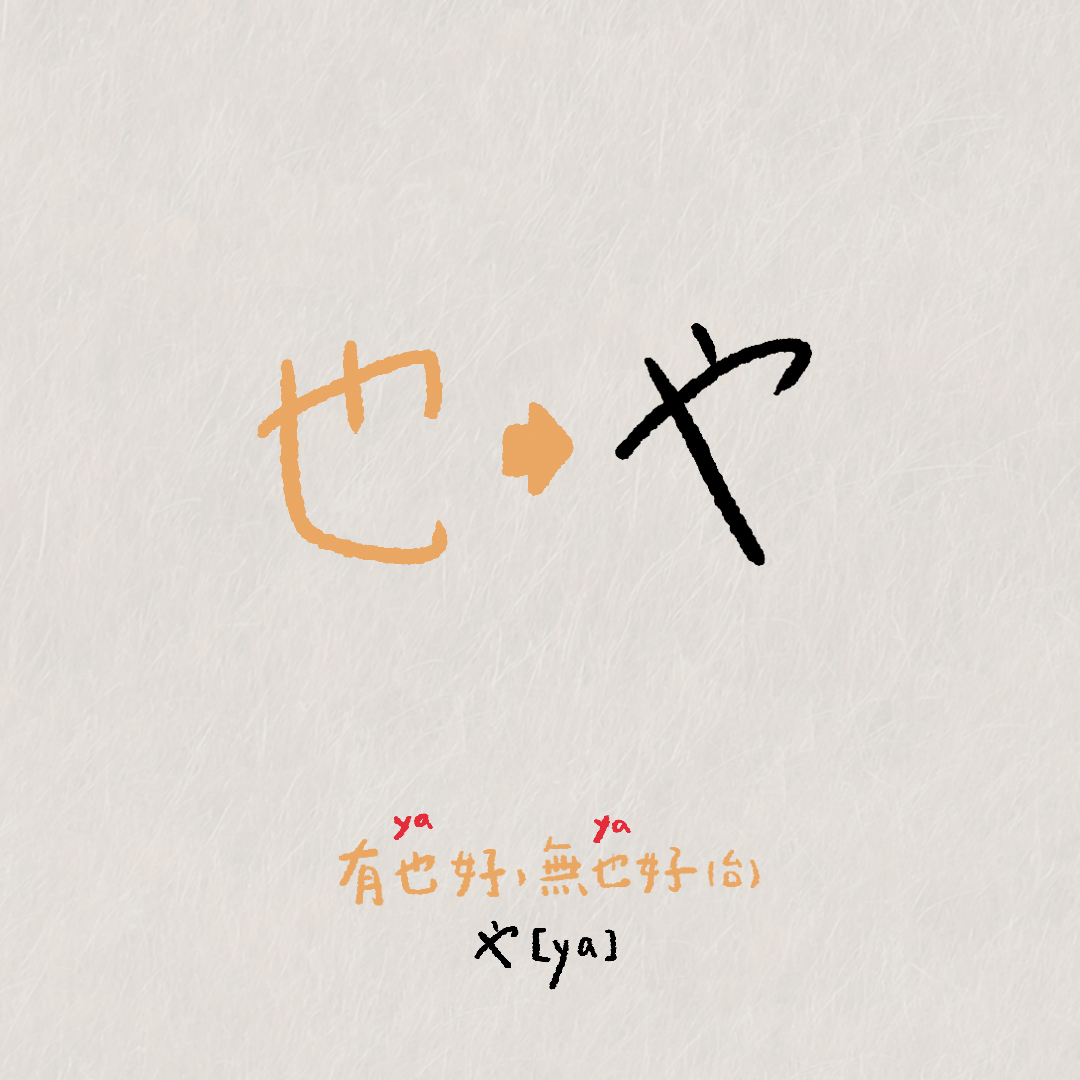 也 → や
ya ya
有也好，無也好(台)
や [ya]